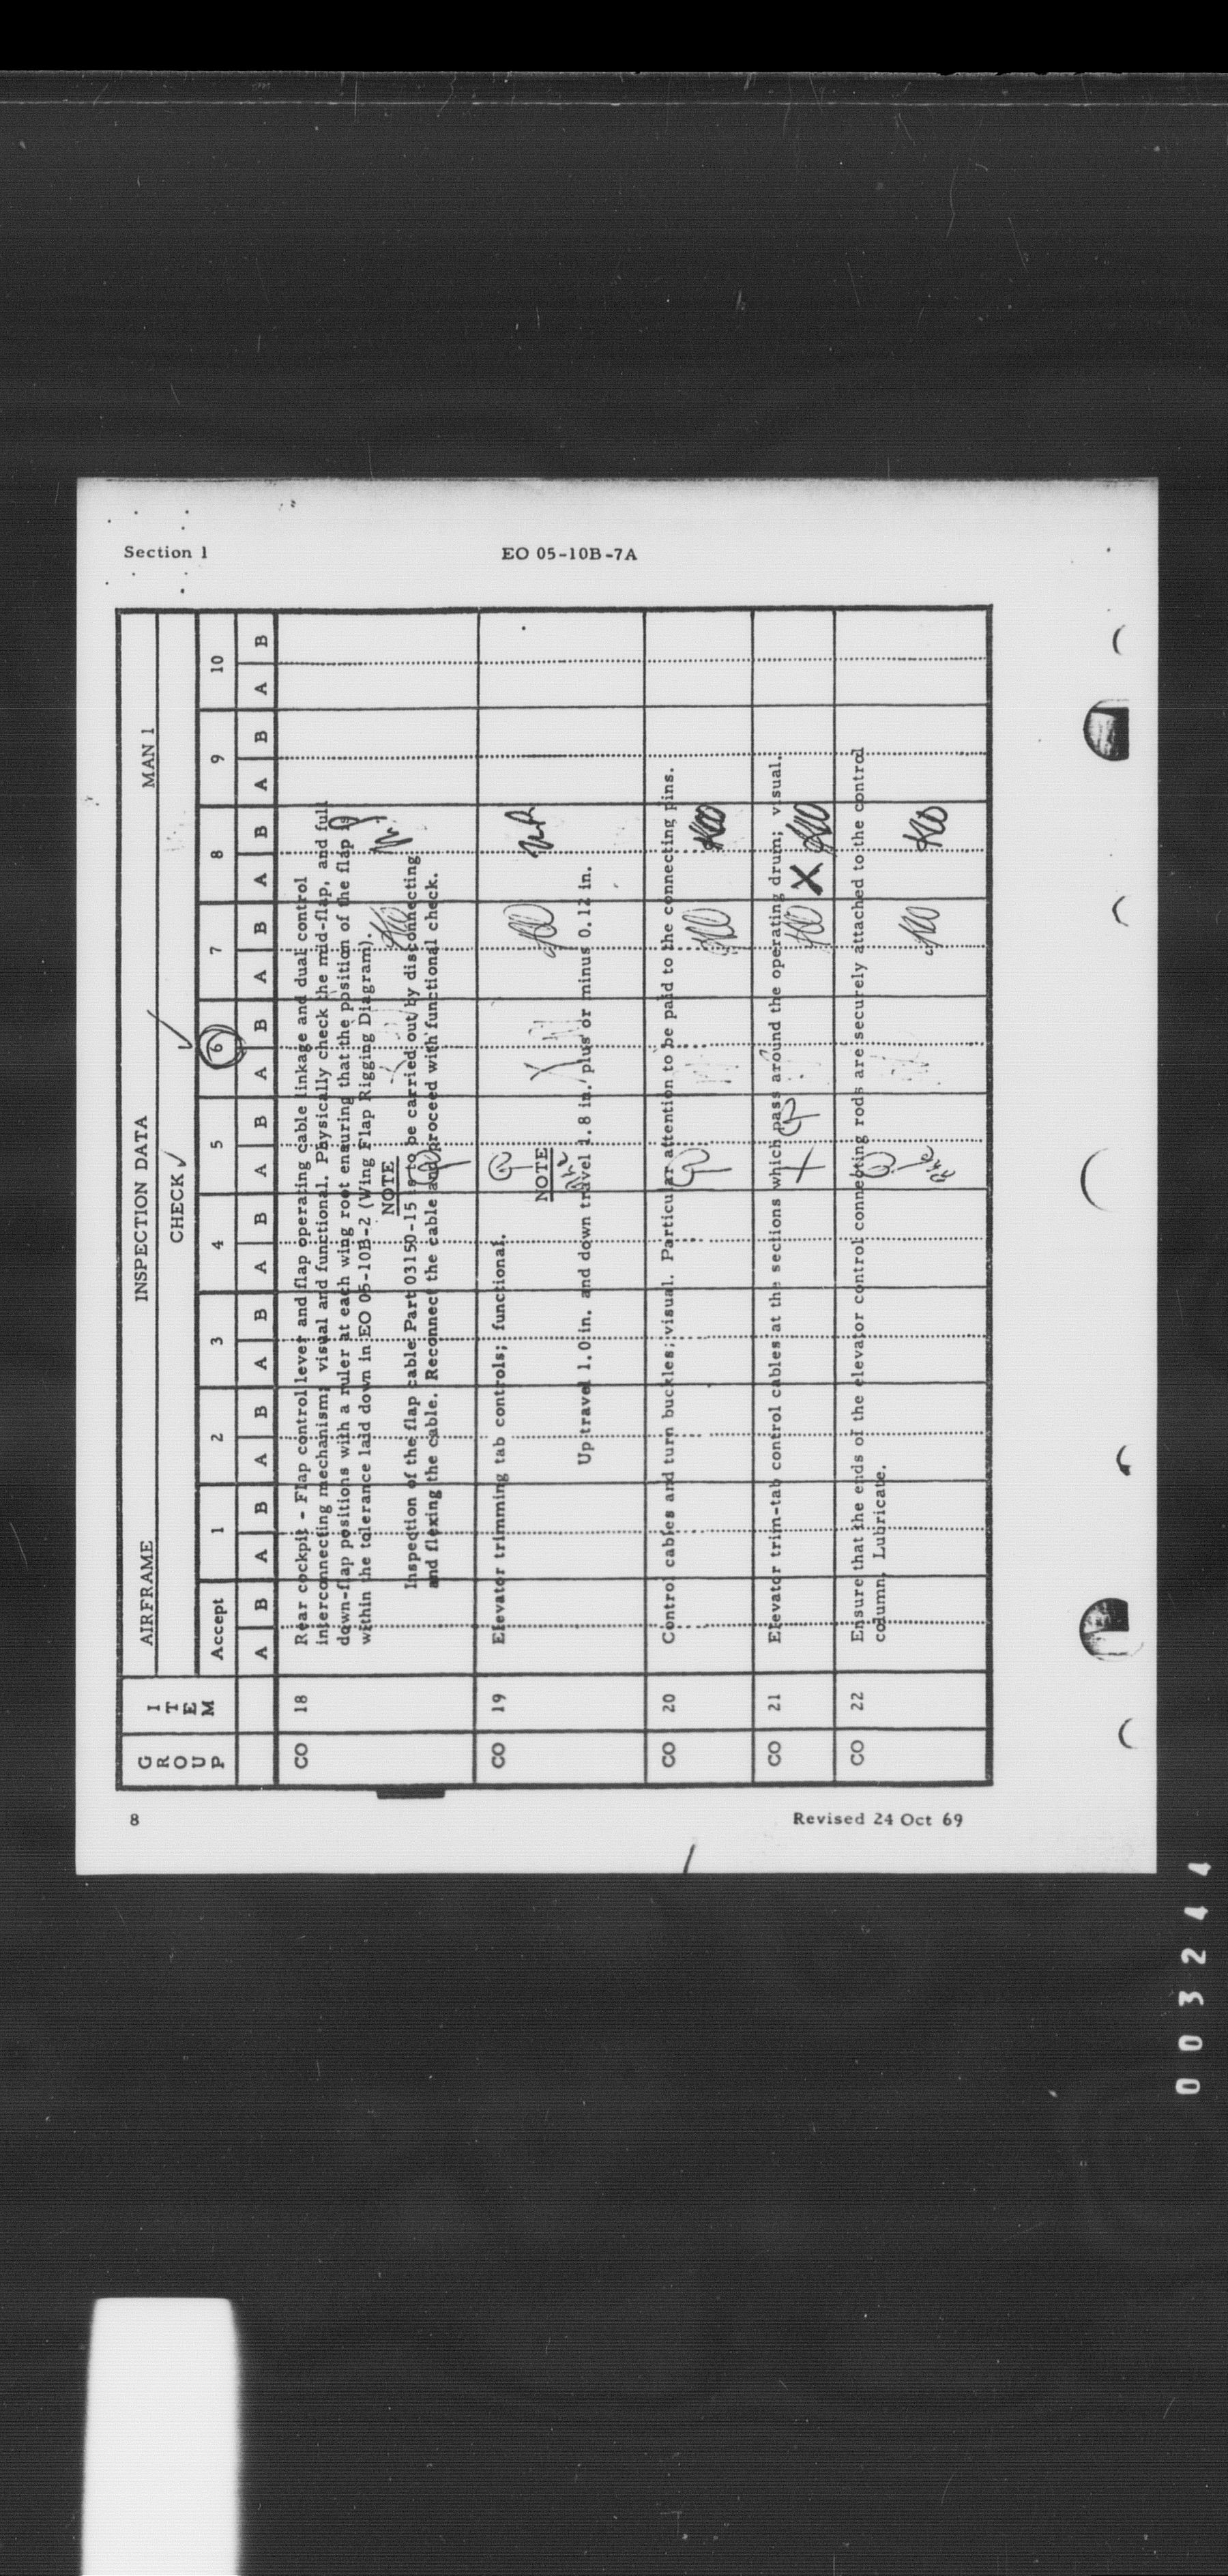 Section 1
EO 05-10B-7A
G R O U P
I T E M
AIRFRAME INSPECTION DATA MAN 1
CHECK ✓
Accept 1 2 3 4 5 6 7 8 9 10
A B A B A B A B A B A B A B A B A B A B A B
CO 18 Rear cockpit - Flap control lever and flap operating cable linkage and dual control
interconnecting mechanism; visual and functional. Physically check the mid-flap, and full
down-flap positions with a ruler at each wing root ensuring that the position of the flap is
within the tolerance laid down in EO 05-10B-2 (Wing Flap Rigging Diagram).
NOTE
Inspection of the flap cable Part 03150-15 is to be carried out by disconnecting
and flexing the cable. Reconnect the cable and proceed with functional check.
CO 19 Elevator trimming tab controls; functional.
NOTE
Up travel 1.0 in. and down travel 1.8 in. plus or minus 0.12 in.
CO 20 Control cables and turn buckles; visual. Particular attention to be paid to the connecting pins.
CO 21 Elevator trim-tab control cables at the sections which pass around the operating drum; visual.
X
CO 22 Ensure that the ends of the elevator control connecting rods are securely attached to the control
column. Lubricate.
8
Revised 24 Oct 69
003244